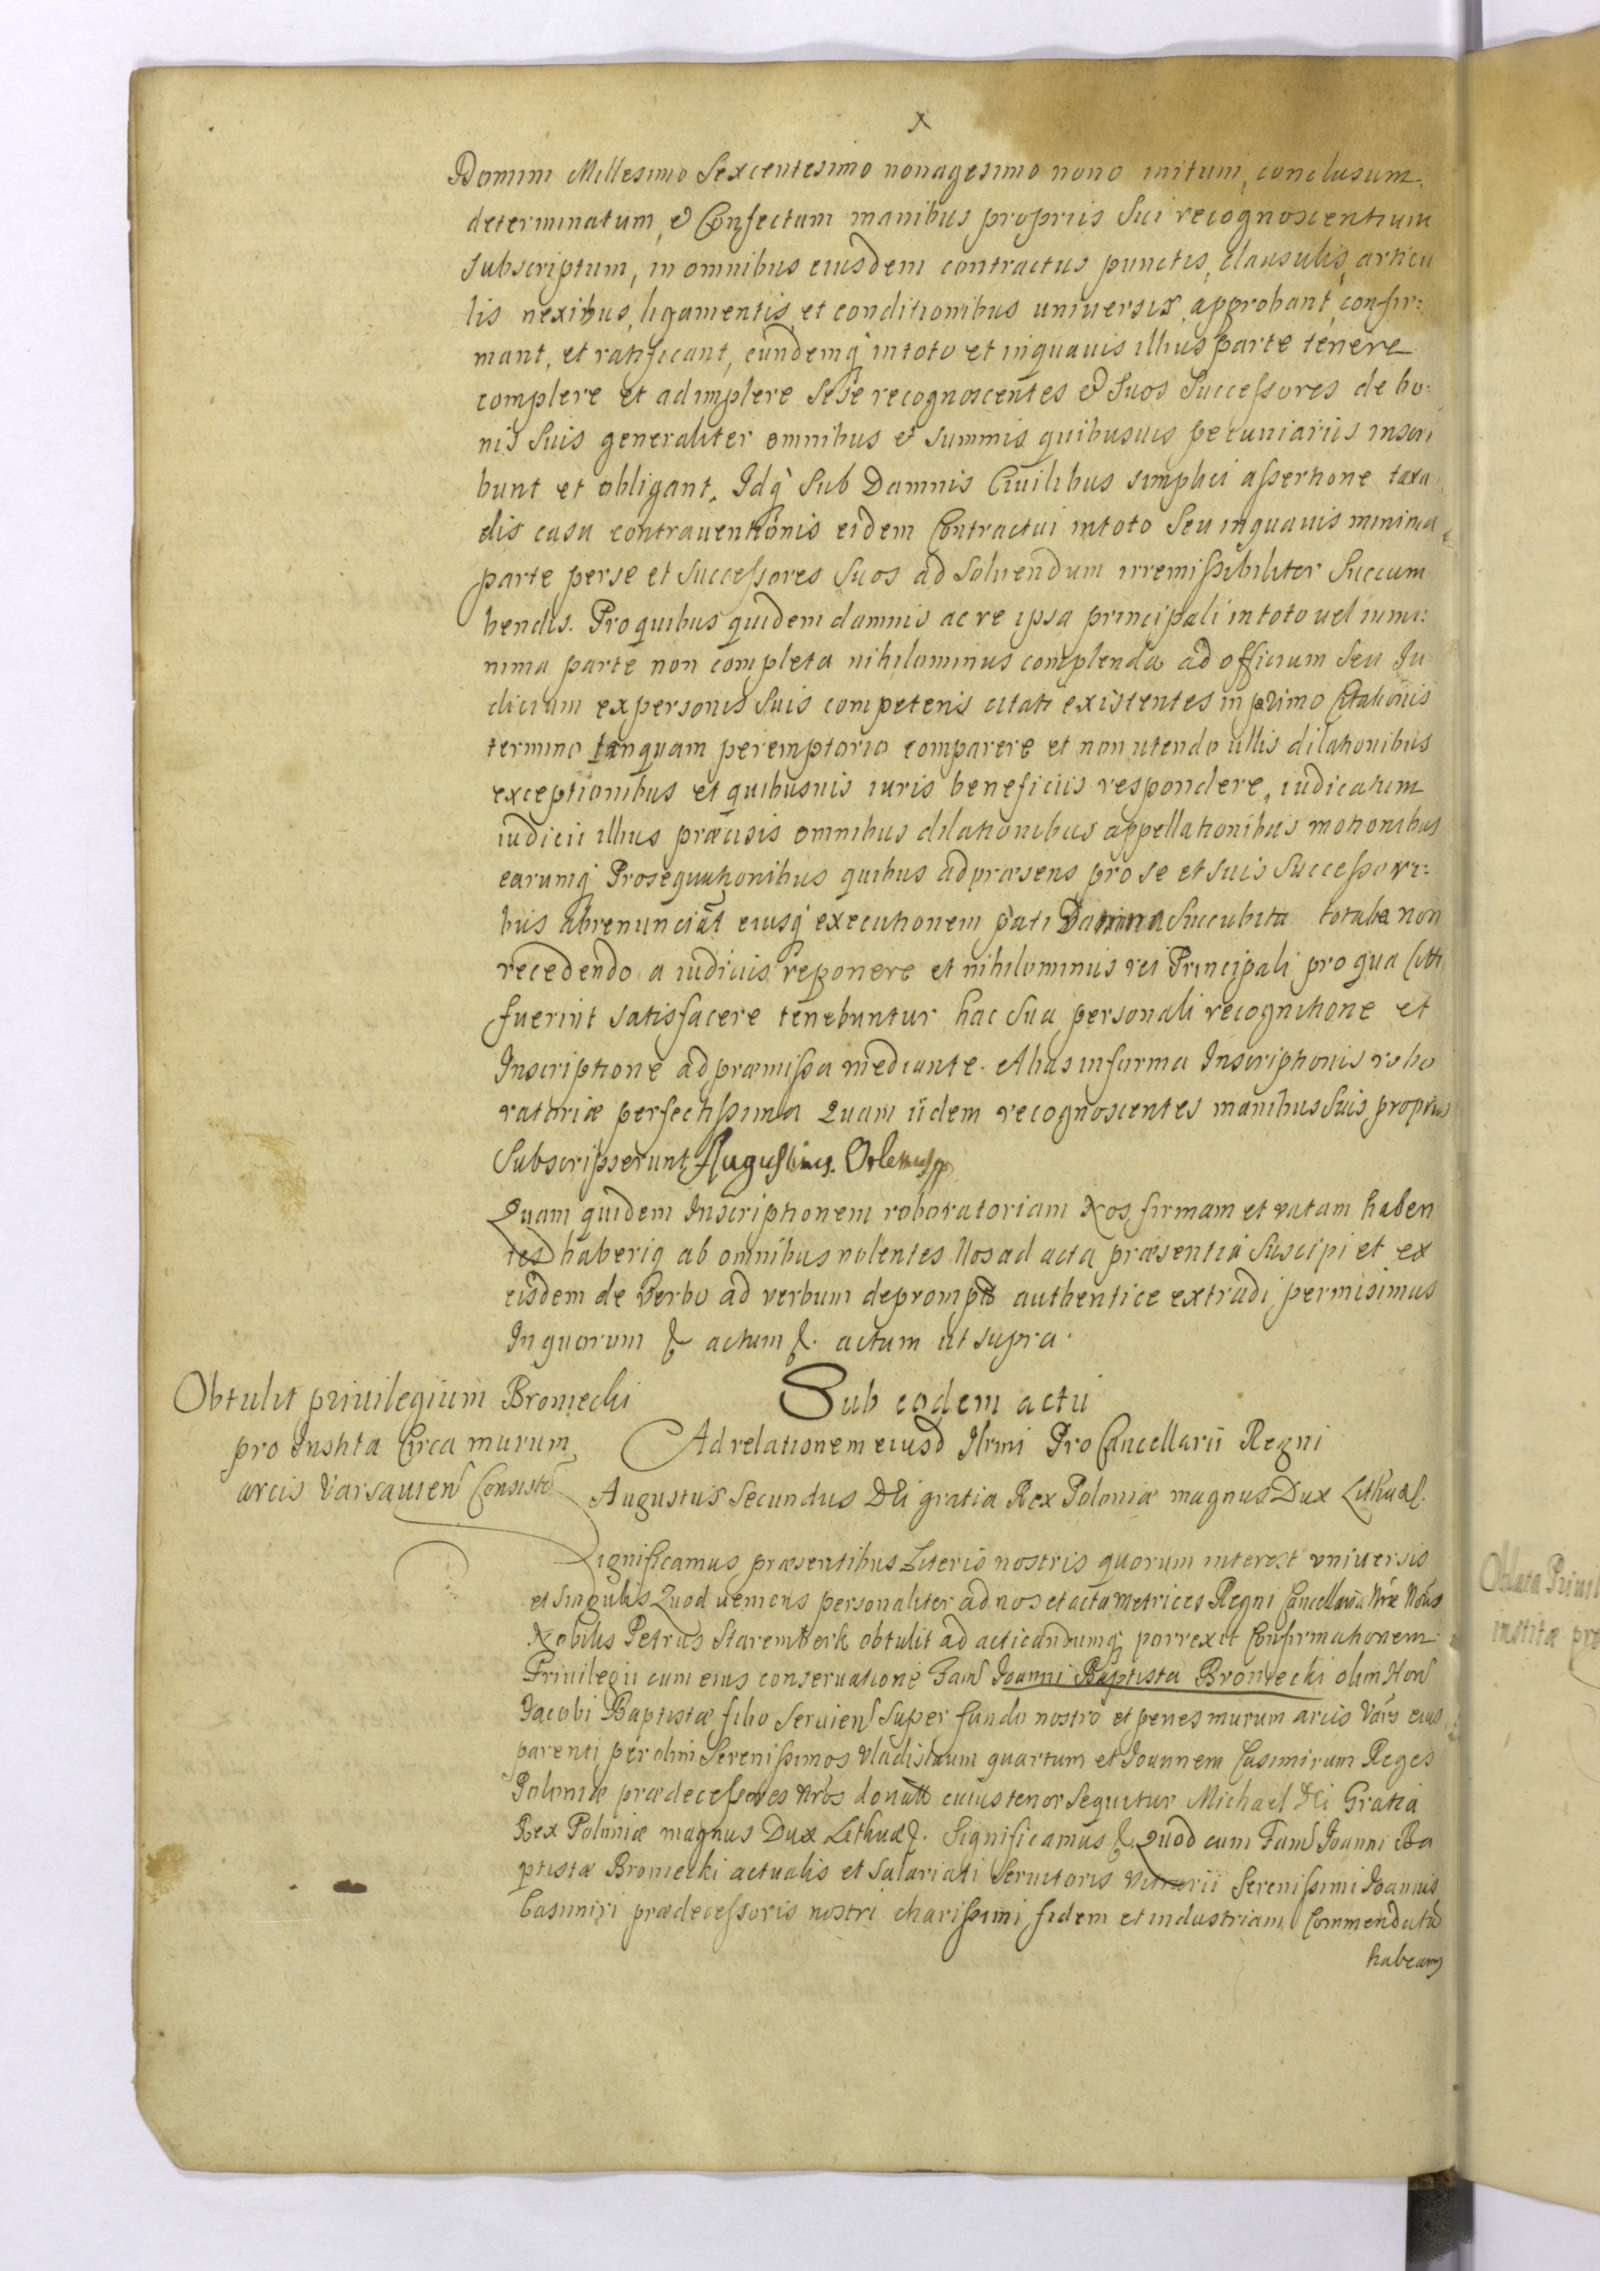 x
Domini Millesimo Sexcentesimo nonagesimo nono initum, conclusum,
determinatum, et Confectum manibus proprijs Sui recognoscentium
subscriptum, in omnibus eiusdem contractus punctis, clausulis, articu
lis nexibus, ligamentis, et conditionibus universis, approbant, confir:
mant, et ratificant, eundemq́ in toto et in quavis illius parte tenere
complere et adimplere Sese recognoscentes et Suos Successores de bo:
nis Suis generaliter omnibus et summis quibusvis pecuniariis inscri
bunt et obligant. Idq́ Sub Damnis Civilibus simplici assertione taxa
dis casu contraventionis eidem Contractui in toto Seu in quavis minima
parte per se et successores Suos ad Soluendum irremissibiliter Succum
bendis. Pro quibus quidem damnis ac re ipsa principali in toto vel in mi:
nima parte non completa nihilominus complenda ad officium Seu Ju
dicium ex personis Suis competens citati existentes in primo Citationis
termino tanquam peremptorio comparere et non utendo ullis dilationibus
exceptionibus et quibusvis iuris beneficiis respondere, iudicatum
iudicii illius præcisis omnibus dilationibus appellationibus motionibus
earumq́ Prosequutionibus quibus ad præsens pro se et suis Successori:
bus abrenunciat eiusq́ executionem pati Damna Succubita totalia non
recedendo a iudiciis reponere et nihilominus rei Principali pro qua Citti
fuerint satisfacere tenebuntur hac Sua personali recognitione et
Inscriptione ad præmissa mediante. Alias in forma Inscriptionis robo
ratoriæ perfectissima Quam iidem recognoscentes manibus Suis proprijs
Subscripserunt Augustinus Orlemus pp
Quam quidem Inscriptionem roboratoriam Nos firmam et ratam haben
tes haberiq ab omnibus volentes Nos ad acta præsentia Suscipi et ex
eisdem de Verbo ad verbum depromptā authentice extradi permisimus
In quorum &. actum &. actum ut supra.
Obtulit privilegium Broniecki
pro Instita Circa murum
arcis Varsavien Consisten
Sub eodem actu
Ad relationem eiusd Ilrmi Pro Cancellarii Regni
Augustus Secundus Dei gratia Rex Poloniæ magnus Dux Lithuae.
Significamus præsentibus Literis nostris quorum interest universis
et singulis Quod veniens personaliter ad nos et acta Metrices Regni Cancellariæ Nræ Nobis
Nobilis Petrus Staremberk obtulit ad acticandumq́ porrexit Confirmationem
Privilegii cum eius conservatione Fam Joanni Baptista Broniecki olim Hon
Jacobi Baptistæ filio Servien Super fundo nostro et penes murum arcis Vars eius
parenti per olim Serenissimos Vladislaum quartum et Joannem Casimirum Reges
Poloniæ prædecessores Nros donatō cuius tenor Sequitur Michael Dei Gratia
Rex Poloniæ magnus Dux Lithuae. Significamus &. Quod cum Fam Joanni Ba
ptistæ Broniecki actualis et Salariati Servitoris Vitrarii Serenissimi Joannis
Casimiri prædecessoris nostri charissimi fidem et industriam Commendatā
habeam
Oblata Privil
institæ pro